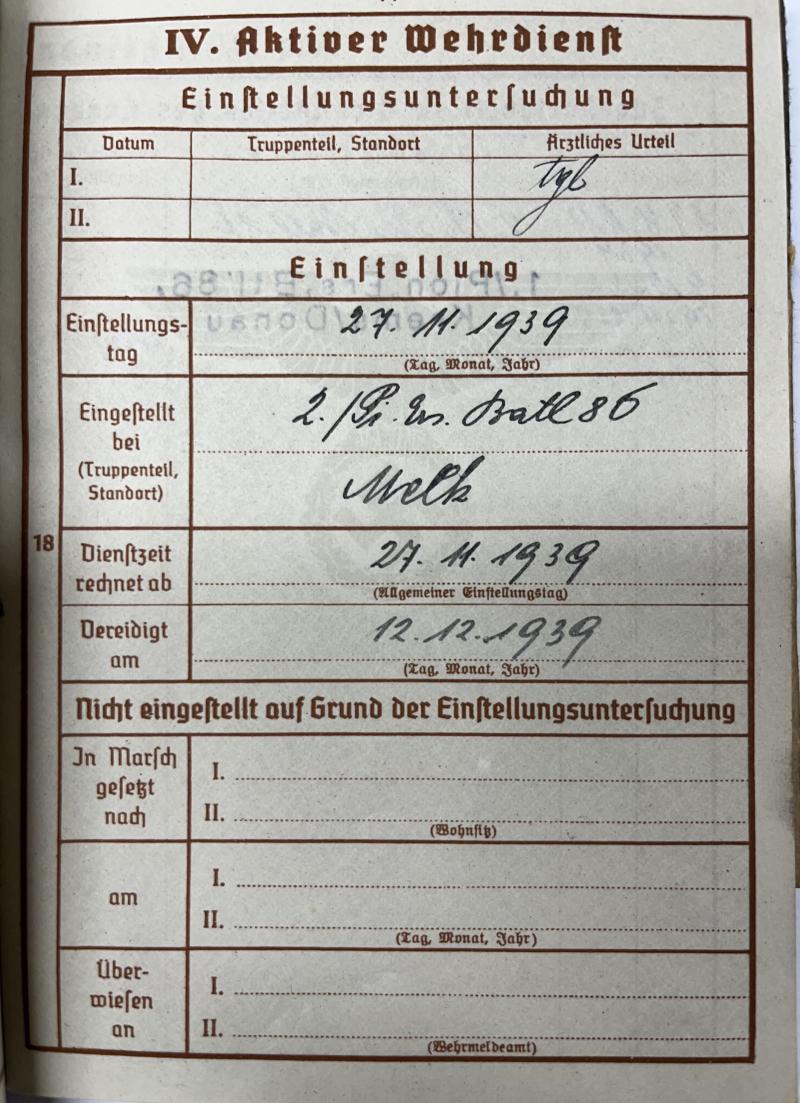 IV. Aktiver Wehrdienst
Einstellungsuntersuchung
Datum Truppenteil, Standort Ärztliches Urteil
I. tgl
II.
Einstellung
Einstellungs-
tag
27. 11. 1939
(Tag, Monat, Jahr)
Eingestellt
bei
(Truppenteil,
Standort)
2./Pi. Ers. Batl 86
Melk
18
Dienstzeit
rechnet ab
27. 11. 1939
(Allgemeiner Einstellungstag)
Vereidigt
am
12.12.1939
(Tag, Monat, Jahr)
Nicht eingestellt auf Grund der Einstellungsuntersuchung
In Marsch
gesetzt
nach
I.
II.
(Wohnsitz)
am
I.
II.
(Tag, Monat, Jahr)
Über-
wiesen
an
I.
II.
(Wehrmeldeamt)